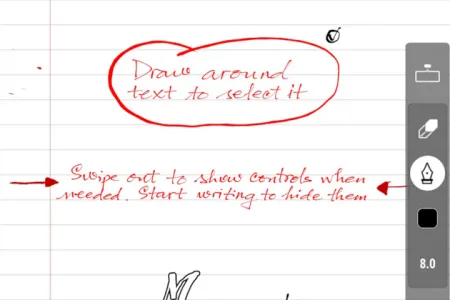 Draw around
text to select it
Swipe out to show controls when
needed. Start writing to hide them
8.0